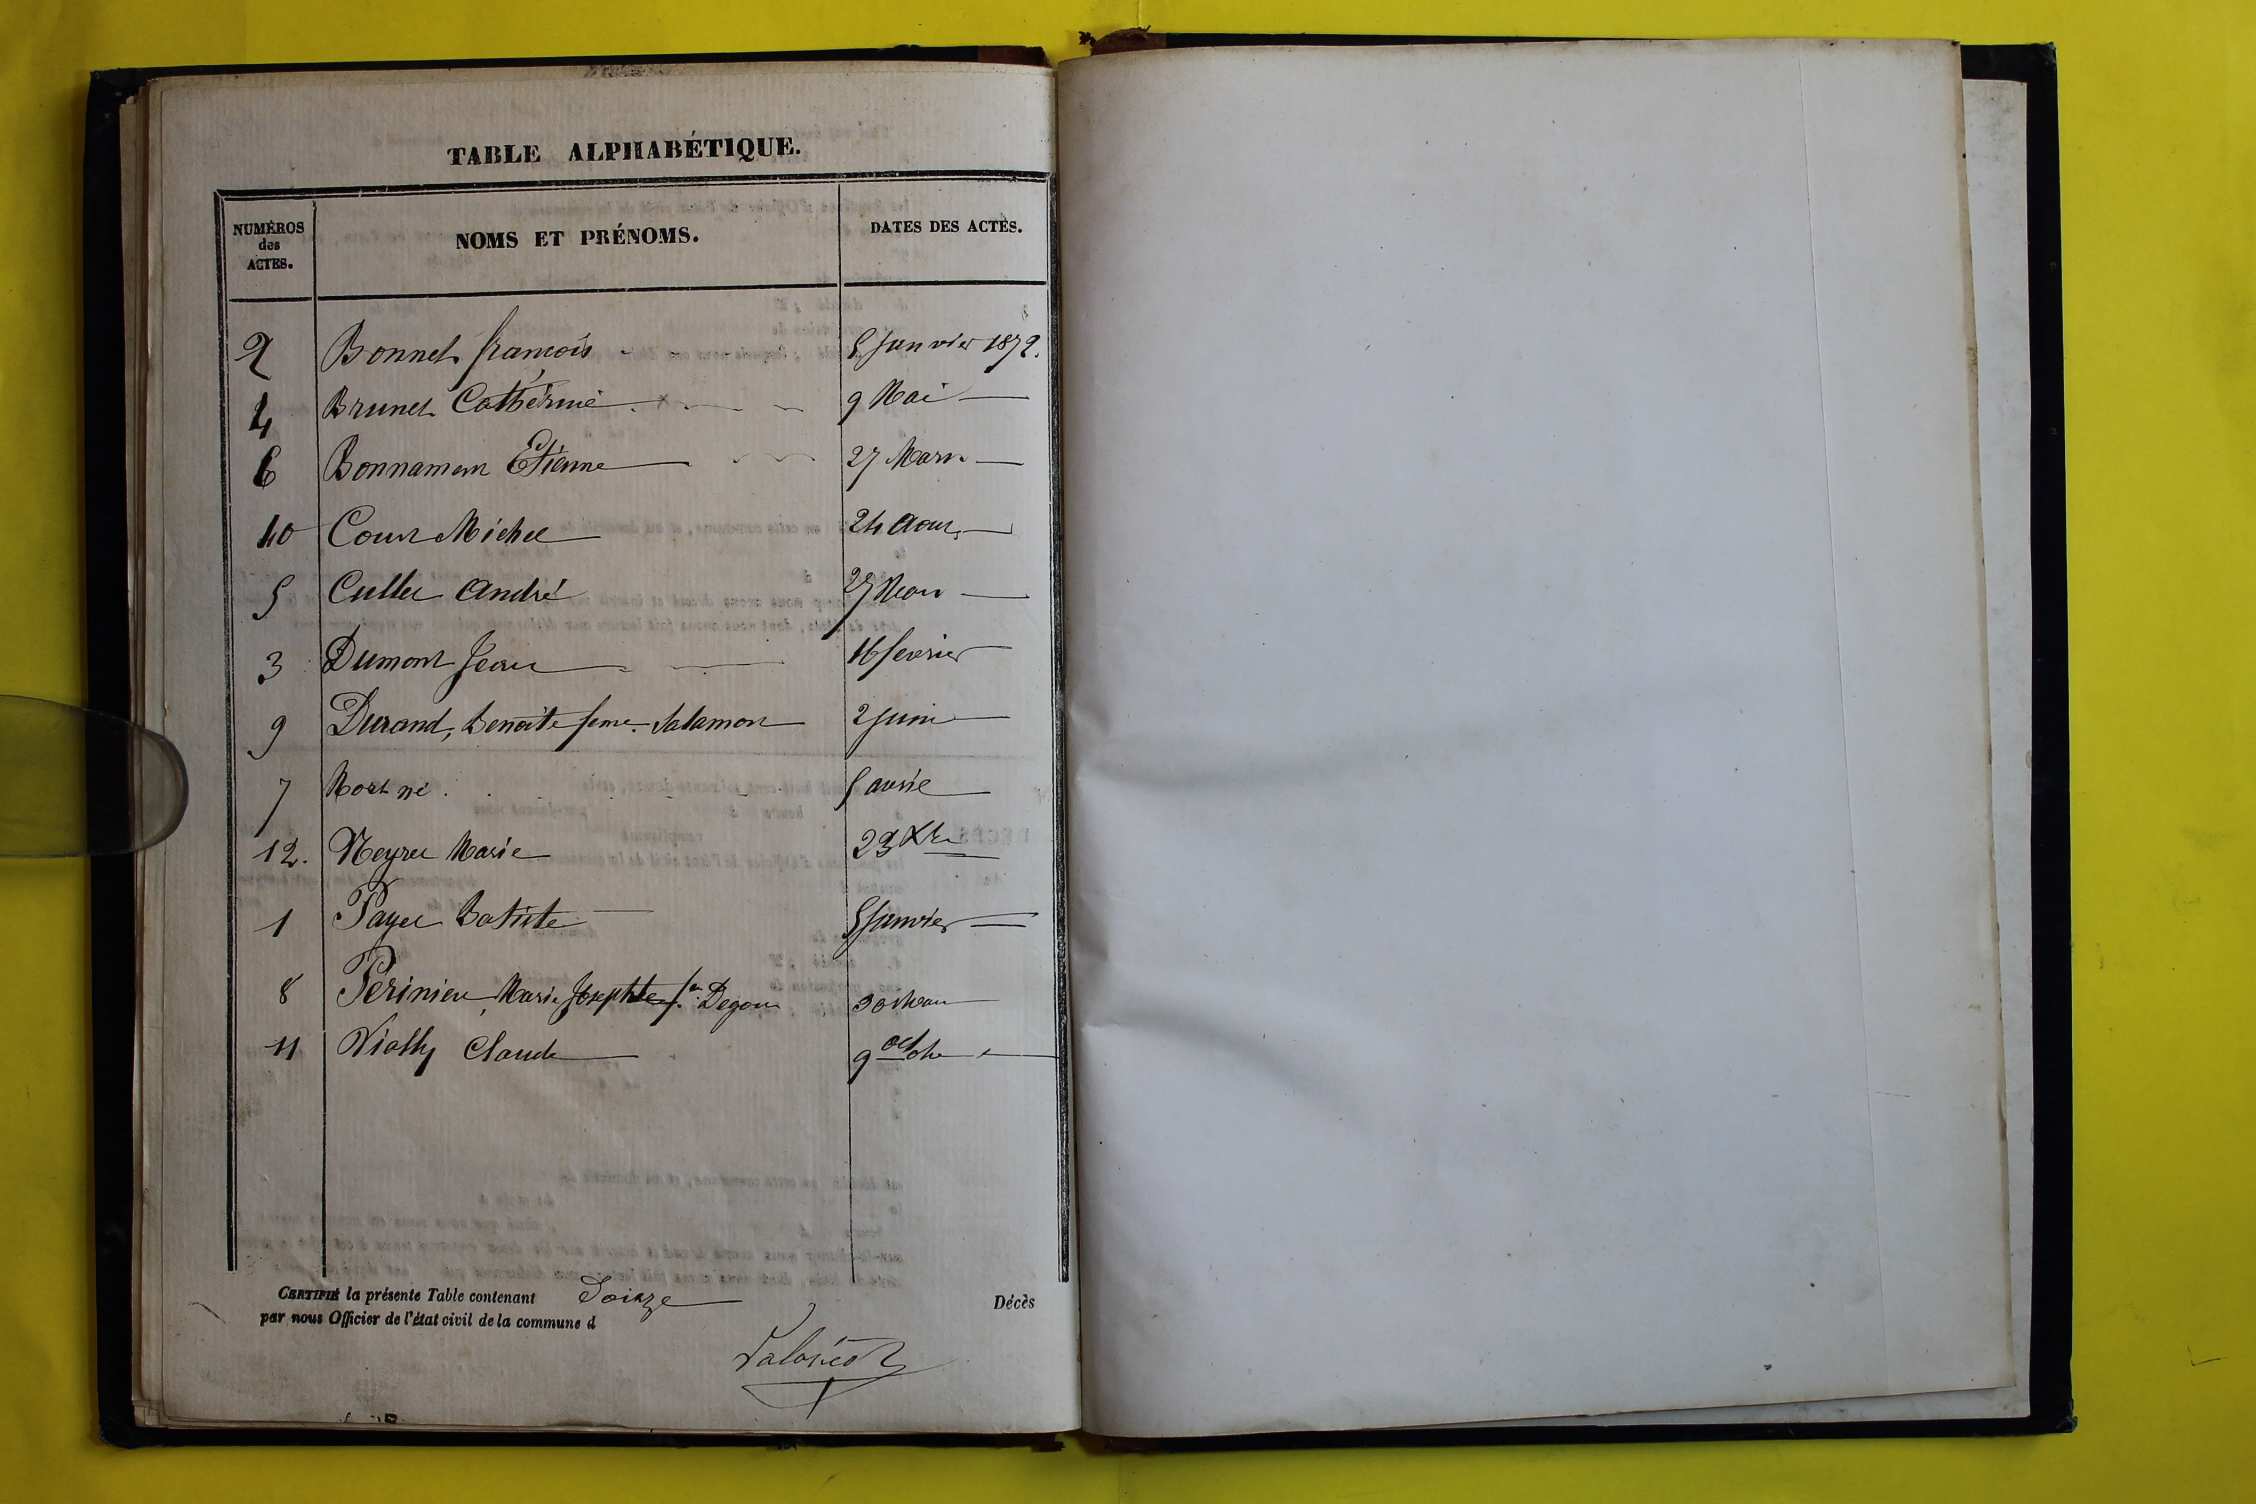 TABLE ALPHABÉTIQUE.
NUMÉROS des ACTES. NOMS ET PRÉNOMS. DATES DES ACTES.
2 Bonnet françois 5 Janvier 1872.
4 Brunet Catherine 9 Mai
6 Bonnamour Etienne 27 Mars
10 Cour Michel 24 Aout
5 André 27 Mars
3 Dumont Jean 16 fevrier
9 Durand, Benoite feme Salamon 2 Juin
7 Mort né 5 avril
12. Neyret Marie 23 Xbre
1 Payet Batiste 5 Janvier
8 Marie Josephte fe. Degout 30
11 Vially Claude 9 octobre
CERTIFIÉ la présente Table contenant Doúze Décès
par nous Officier de l'état civil de la commune d